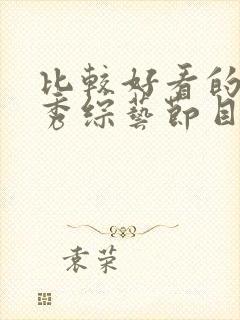 比較好看的
秀綜藝節目
袁荣